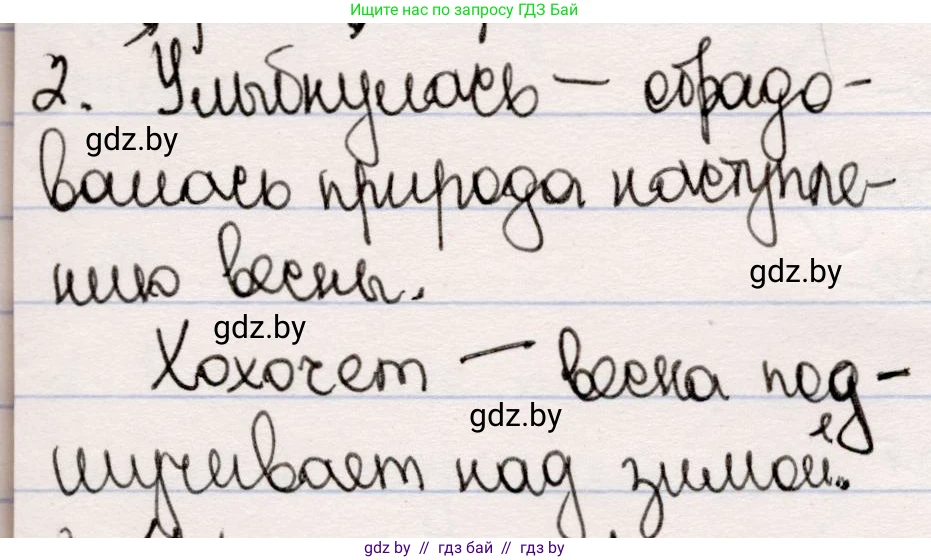 Ищите нас по запросу ГДЗ Бай
2. Улыбнулась — обрадо-
gdz.by
валась природа наступле-
нию весны.
gdz.by
gdz.by
Хохочет — весна под-
gdz.by
шучивает над зимой.
gdz.by // гдз бай // gdz by